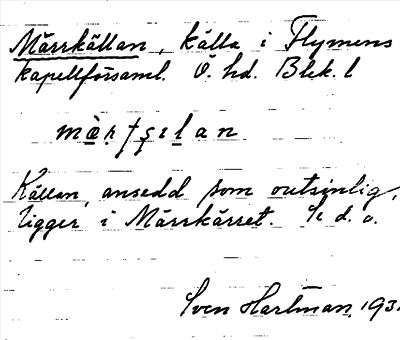 Märrkällan, källa i Flymens
kapellförsaml. Ö. hd. Blek. l
Källan, ansedd som outsinlig,
ligger i Märrkärret. Se d. o.
Sven Hartman, 193